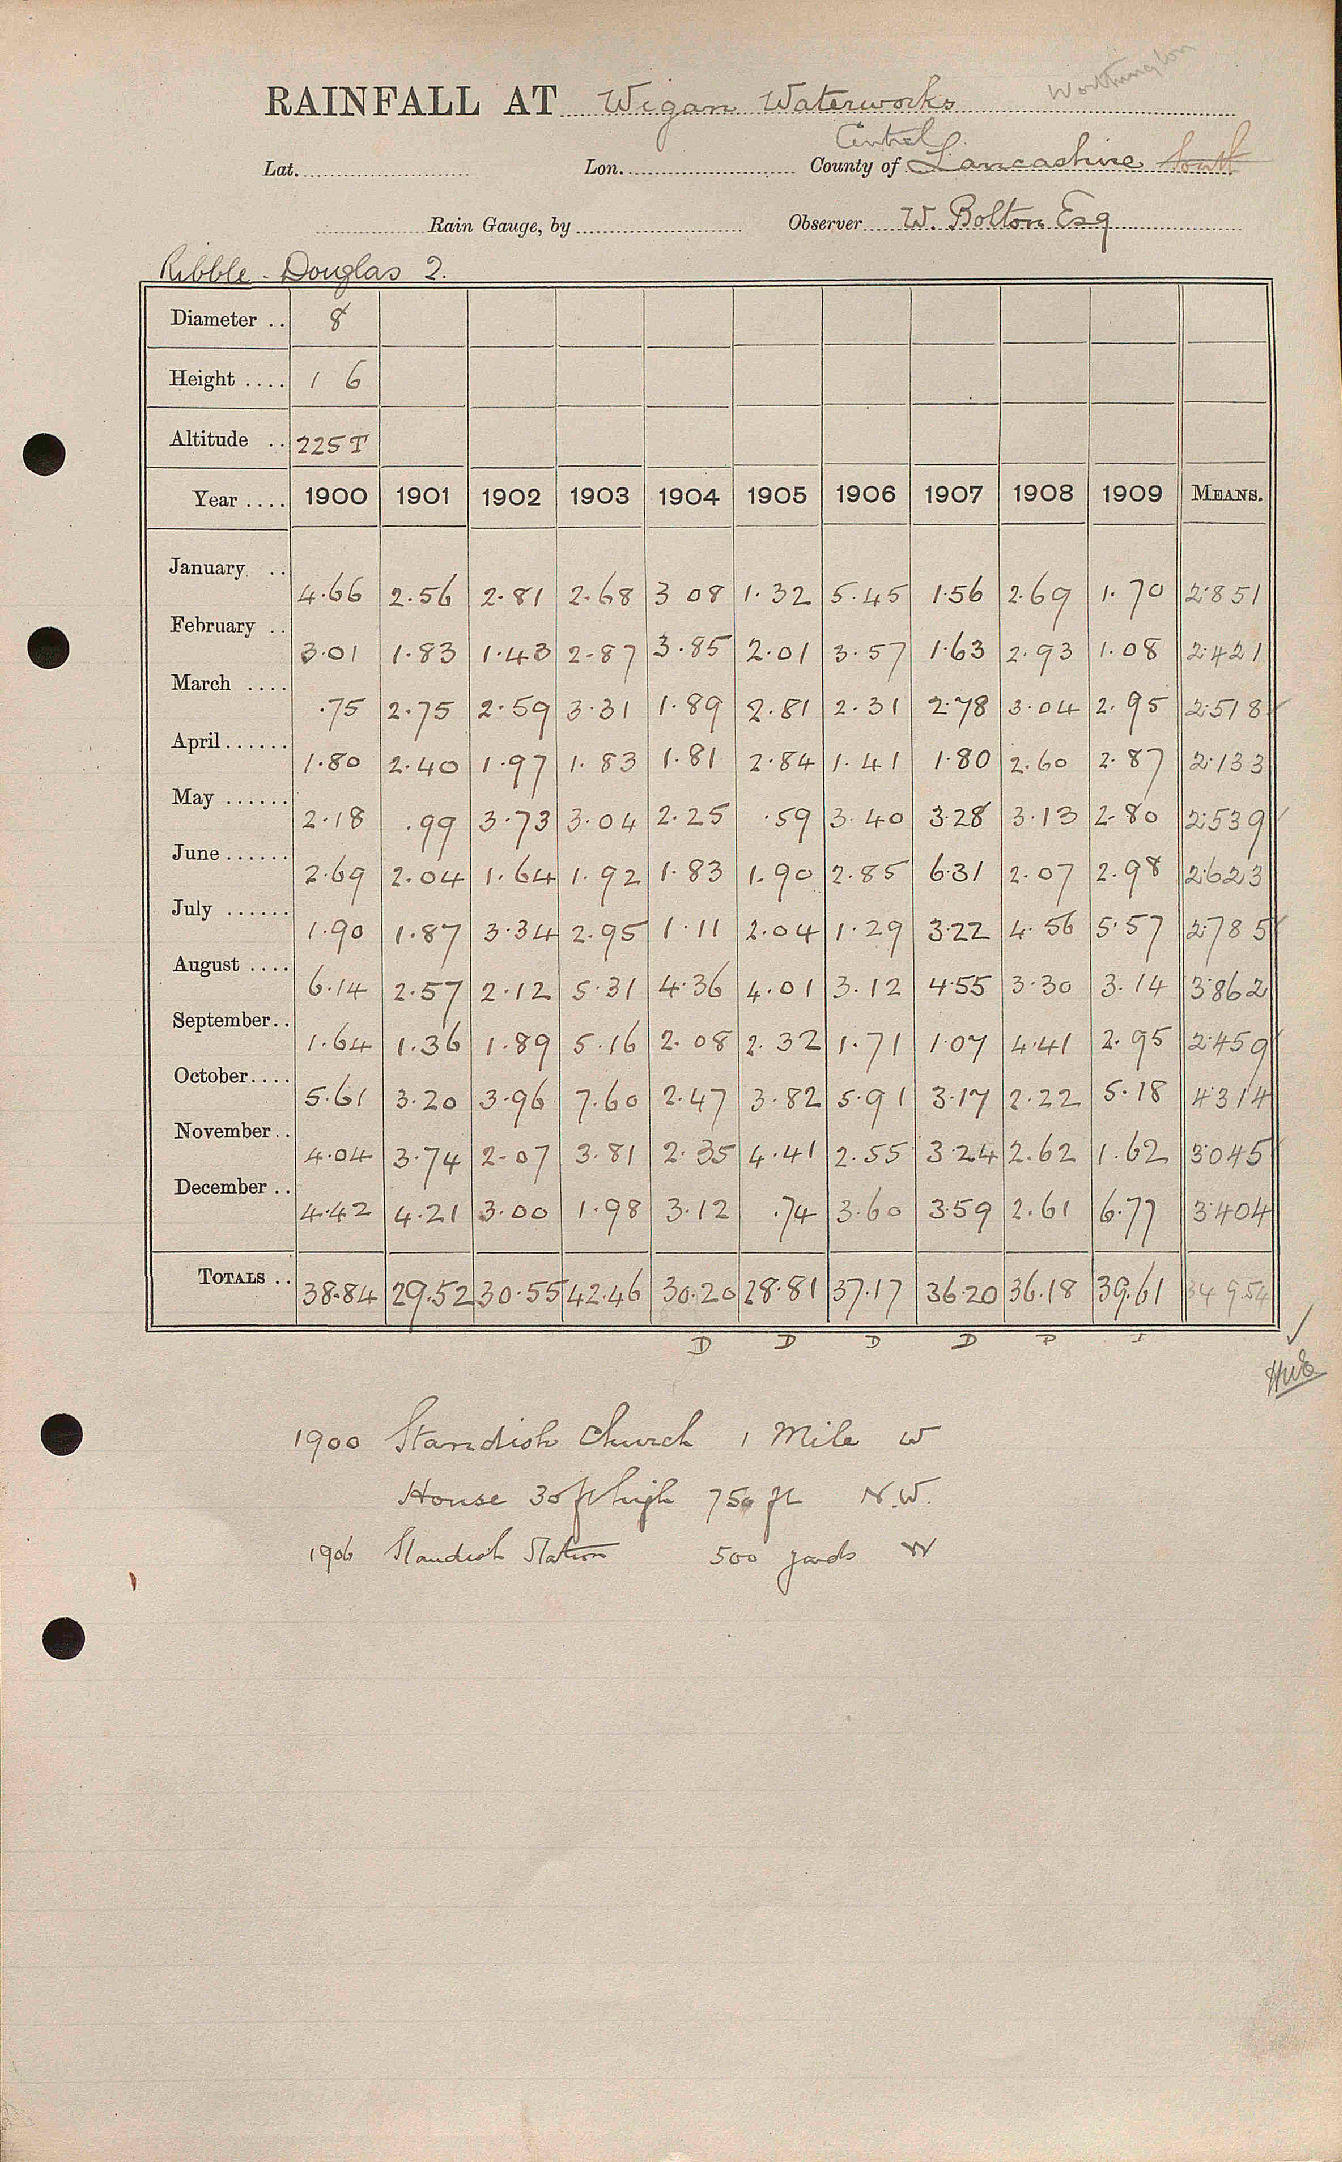 Worthington
RAINFALL AT Wigan Waterworks
Central
Lat. Lon. County of Lancashire South
Rain Gauge, by Observer W. Bolton Esq
Ribble - Douglas 2.
Diameter .. 8
Height .... 1 6
Altitude .. 225 T
Year .... 1900 1901 1902 1903 1904 1905 1906 1907 1908 1909 MEANS.
January .. 4.66 2.56 2.81 2.68 3 08 1.32 5.45 1.56 2.69 1.70 2.851
February .. 3.01 1.83 1.43 2.87 3.85 2.01 3.57 1.63 2.93 1.08 2.421
March .... .75 2.75 2.59 3.31 1.89 2.81 2.31 2.78 3.04 2.95 2.518
April ...... 1.80 2.40 1.97 1.83 1.81 2.84 1.41 1.80 2.60 2.87 2.133
May ...... 2.18 .99 3.73 3.04 2.25 .59 3.40 3.28 3.13 2.80 2.539
June ...... 2.69 2.04 1.64 1.92 1.83 1.90 2.85 6.31 2.07 2.98 2.623
July ...... 1.90 1.87 3.34 2.95 1.11 2.04 1.29 3.22 4.56 5.57 2.785
August .... 6.14 2.57 2.12 5.31 4.36 4.01 3.12 4.55 3.30 3.14 3.862
September .. 1.64 1.36 1.89 5.16 2.08 2.32 1.71 1.07 4.41 2.95 2.459
October .... 5.61 3.20 3.96 7.60 2.47 3.82 5.91 3.17 2.22 5.18 4.314
November .. 4.04 3.74 2.07 3.81 2.35 4.41 2.55 3.24 2.62 1.62 3.045
December .. 4.42 4.21 3.00 1.98 3.12 .74 3.60 3.59 2.61 6.77 3.404
TOTALS .. 38.84 29.52 30.55 42.46 30.20 28.81 37.17 36.20 36.18 39.61 34 9.54
D D D D P I
1900 Standish Church 1 Mile W
House 30 ft high 750 ft N.W.
1906 Standish Station 500 yards W